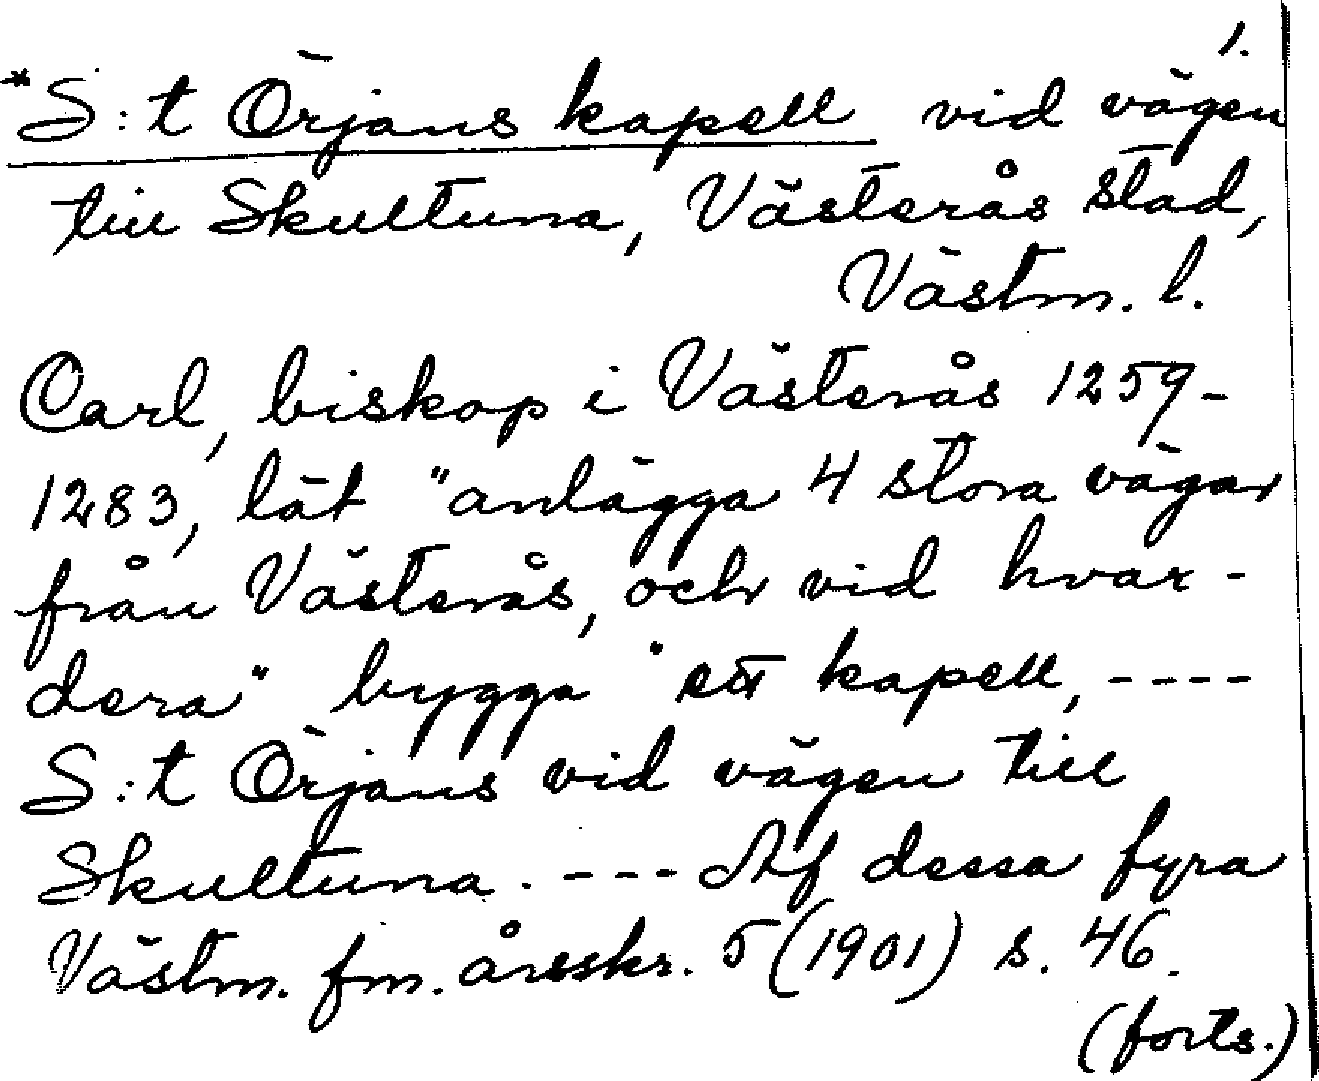 1.
*S:t Örjans kapell vid vägen
till Skultuna, Västerås stad,
Västm. l.
Carl, biskop i Västerås 1259-
1283, lät "anlägga 4 stora vägar
från Västerås, och vid hvar-
dera" bygga "ett kapell, ----
S:t Örjans vid vägen till
Skultuna. --- Af dessa fyra
Västm. fm. årsskr. 5 (1901) s. 46.
(forts.)